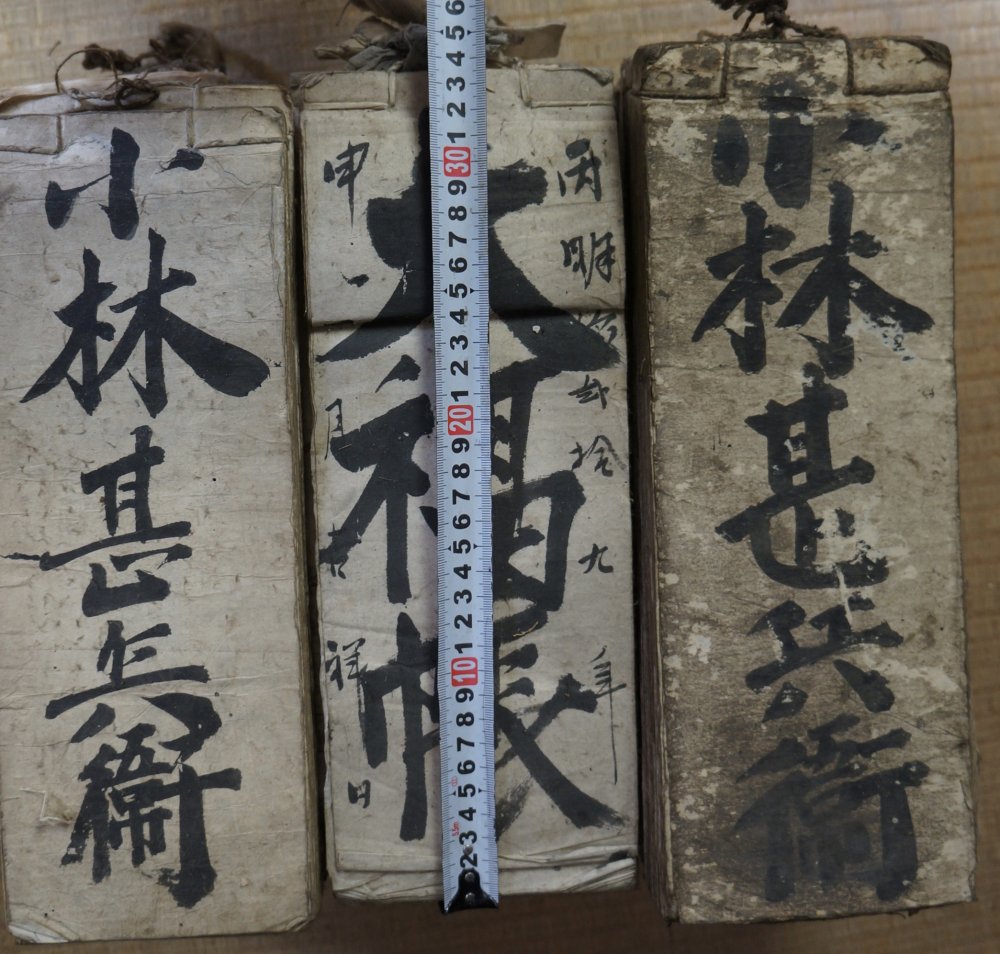 小林甚兵衛
丙明治弐拾九年
大福帳
申一月吉祥日
6 5 4 3 2 1 30 9 8 7 6 5 4 3 2 1 20 9 8 7 6 5 4 3 2 1 10 9 8 7 6 5 4 3 2
5.5m
小林甚兵衛